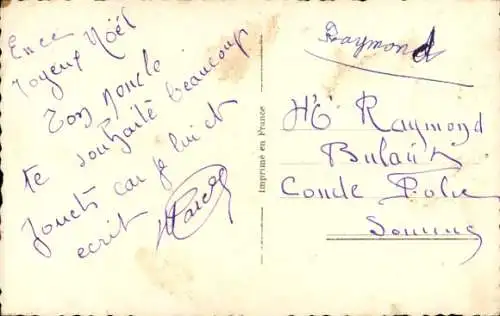 En ce
Joyeux Noël
Ton Noncle
te souhaite beaucoup
Jouets car je lui et
ecrit
Imprimé en France
Raymond
Raymond
Conde Folie
Somme